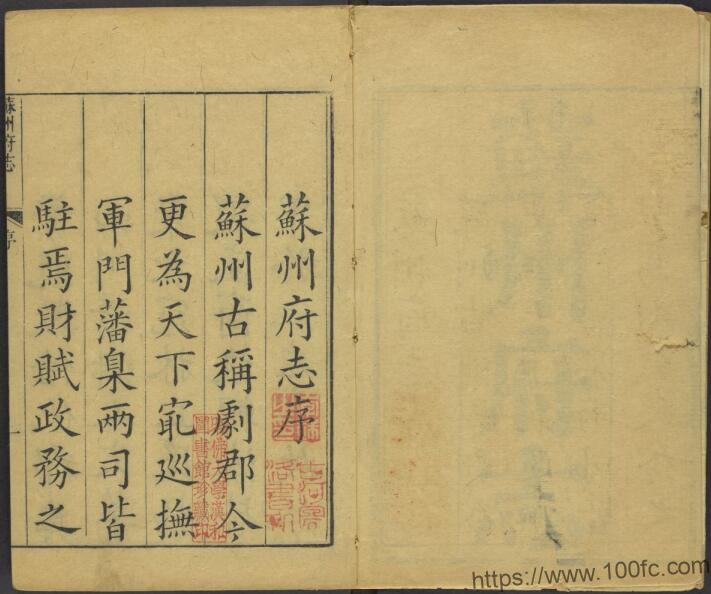 蘇州府志序
蘇州古稱劇郡今
更為天下冣巡撫
軍門藩臬两司皆
駐焉財賦政務之
蘇州府志
序
一
https://www.100fc.com